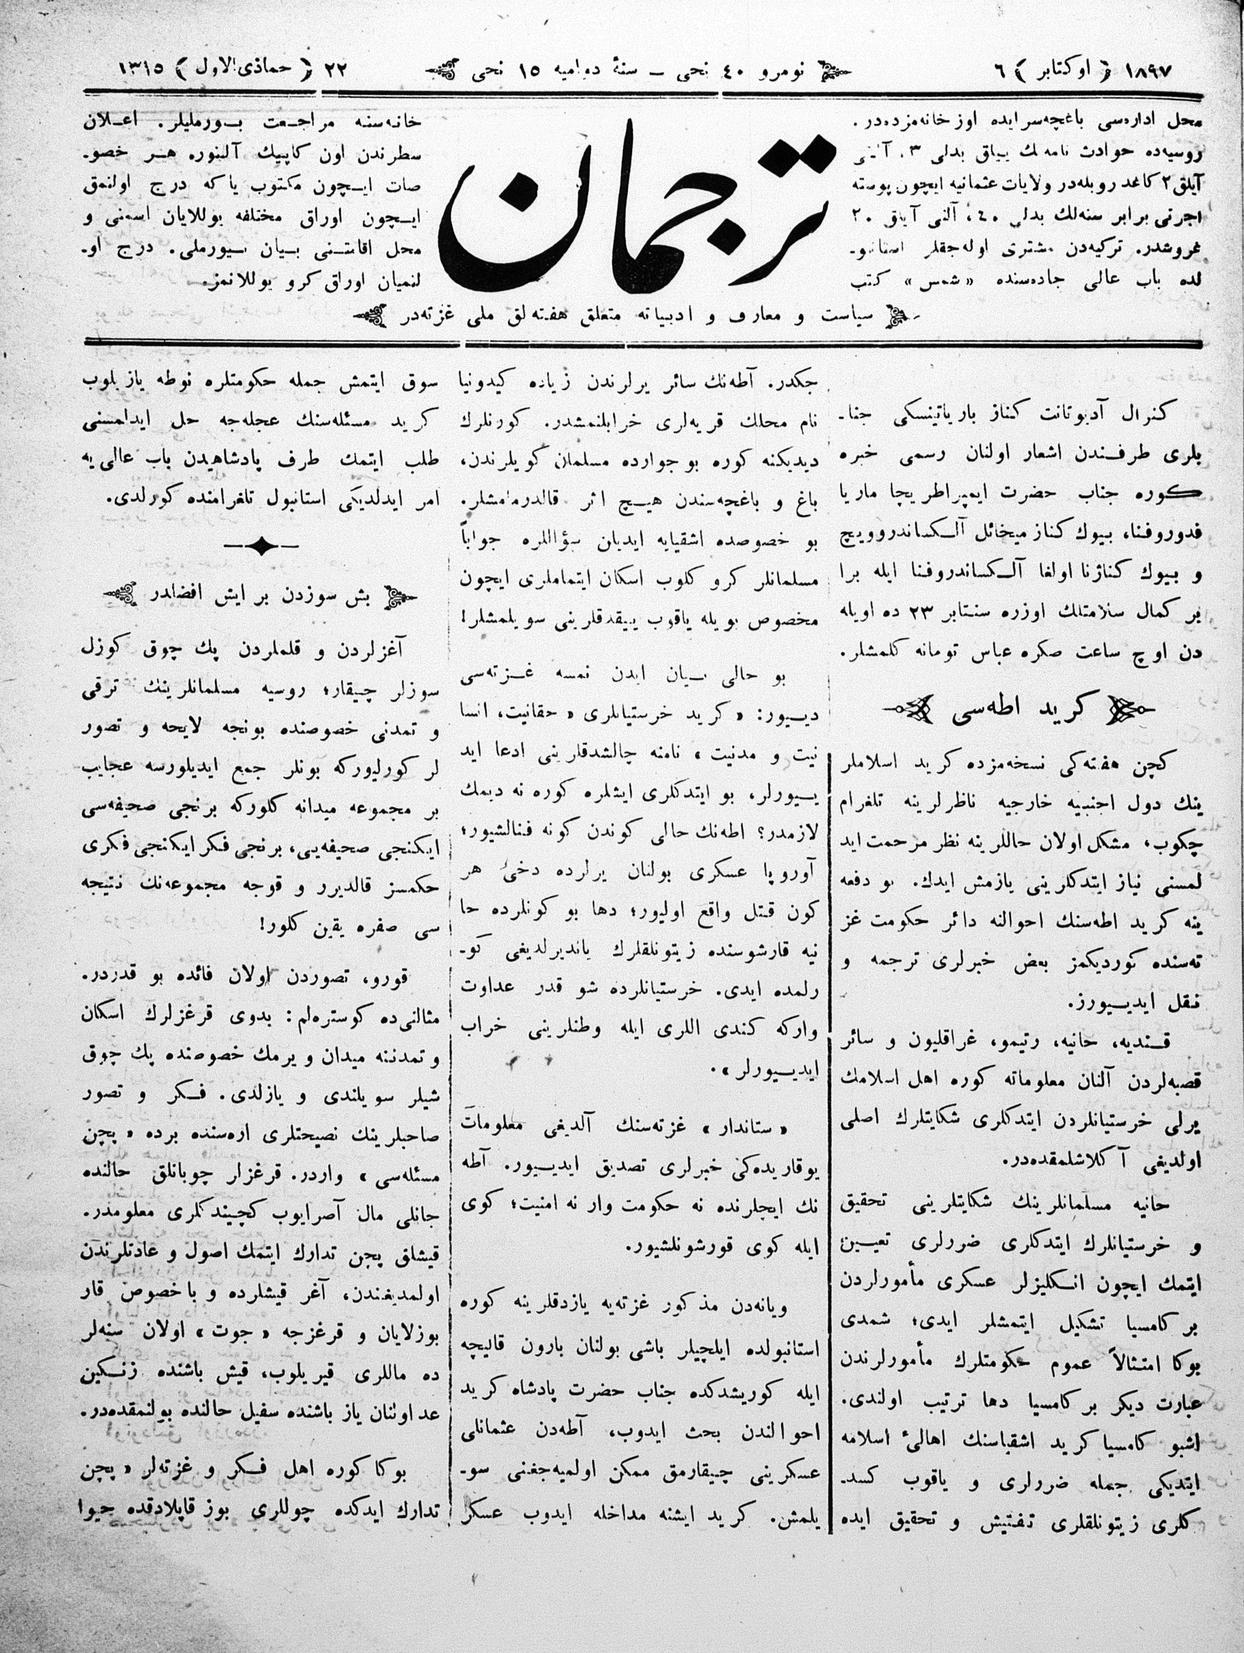 ١٨٩٧ ﴿ اوكتابر ﴾ ٦
نومرو ٤٠ نجى — سنهٔ دواميه ١٥ نجى
٢٢ ﴿ جماذى الاول ﴾ ١٣١٥
محل اداره‌سى باغچه‌سرايده اوز خانه‌مزده‌در.
روسيه‌ده حوادث نامه‌نك ييلق بدلى ٣، آلتى
آيلق ٢ كاغد روبله‌در ولايات عثمانيه ايچون پوسته
اجرتى برابر سنه‌لك بدلى ٤٠، آلتى آيلق ٢٠
غروشدر. تركيه‌دن مشترى اوله‌جقلر استانبو‌ـ
لده باب عالى جاده‌سنده «شمس» كتب
ترجمان
خانه‌سنه مراجعت بيورمليلر. اعلان
سطرندن اون كاپيك آلنور. هر خصو‌ـ
صات ايچون مكتوب ياكه درج اولنمق
ايچون اوراق مختلفه يوللايان اسمنى و
محل اقامتنى بيان بيورملى. درج او‌ـ
لنميان اوراق كرو يوللانمز.
سياست و معارف و ادبياته متعلق هفته‌لق ملى غزته‌در
كنرال آديوتانت كناز بارياتينسكى جنا‌ـ
بلرى طرفندن اشعار اولنان رسمى خبره
كوره جناب حضرت ايمپراطريچا ماريا
فدوروفنا، بيوك كناز ميخائل آلكساندروويچ
و بيوك كناژنا اولغا آلكساندروفنا ايله برا
بر كمال سلامتلك اوزره سنتابر ٢٣ ده اويله
دن اوچ ساعت صكره عباس تومانه كلمشلر.
كريد اطه‌سى
كچن هفته‌كى نسخه‌مزده كريد اسلاملر
ينك دول اجنبيه خارجيه ناظرلرينه تلغرام
چكوب، مشكل اولان حاللرينه نظر مرحمت ايد
لمسنى نياز ايتدكلرينى يازمش ايدك. بو دفعه
ينه كريد اطه‌سنك احوالنه دائر حكومت غز
ته‌سنده كورديكمز بعض خبرلرى ترجمه و
نقل ايديورز.
قنديه، خانيه، رتيمو، غراقليون و سائر
قصبه‌لردن آلنان معلوماته كوره اهل اسلامك
يرلى خرستيانلردن ايتدكلرى شكايتلرك اصلى
اولديغى آكلاشلمقده‌در.
خانيه مسلمانلرينك شكايتلرينى تحقيق
و خرستيانلرك ايتدكلرى ضررلرى تعيين
ايتمك ايچون انكليزلر عسكرى مأمورلردن
بر كامسيا تشكيل ايتمشلر ايدى؛ شمدى
بوكا امتثالاً عموم حكومتلرك مأمورلرندن
عبارت ديكر بر كامسيا دها ترتيب اولندى.
اشبو كامسيا كريد اشقياسنك اهالىٔ اسلامه
ايتديكى جمله ضررلرى و ياقوب كسد‌ـ
كلرى زيتونلقلرى تفتيش و تحقيق ايده
جكدر. آطه‌نك سائر يرلرندن زياده كيدونيا
نام محلك قريه‌لرى خرابلنمشدر. كورنلرك
ديديكنه كوره بو جوارده مسلمان كويلرندن،
باغ و باغچه‌سندن هيچ اثر قالدرمامشلر.
بو خصوصده اشقيايه ايديان سؤاللره جواباً
مسلمانلر كرو كلوب اسكان ايتماملرى ايچون
مخصوص بويله ياقوب ييقدقلرينى سويلمشلر!
بو حالى بيان ايدن نمسه غزته‌سى
ديور: «كريد خرستيانلرى «حقانيت، انسا
نيت و مدنيت» نامنه چالشدقلرينى ادعا ايد
ييورلر، بو ايتدكلرى ايشلره كوره نه ديمك
لازمدر؟ اطه‌نك حالى كوندن كونه فنالشيور؛
آوروپا عسكرى بولنان يرلرده دخى هر
كون قتل واقع اوليور؛ دها بو كونلرده حا
نيه قارشوسنده زيتونلقلرك ياندیرلديغى كو‌ـ
رلمده ايدى. خرستيانلرده شو قدر عداوت
واركه كندى اللرى ايله وطنلرينى خراب
ايدييورلر».
«ستاندار» غزته‌سنك آلديغى معلومات
يوقاريده‌كى خبرلرى تصديق ايدييور. آطه
نك ايچلرنده نه حكومت وار نه امنيت؛ كوى
ايله كوى قورشونلشيور.
ويانه‌دن مذكور غزته‌يه يازدقلرينه كوره
استانبولده ايلچيلر باشى بولنان بارون قاليچه
ايله كوريشدكده جناب حضرت پادشاه كريد
احوالندن بحث ايدوب، آطه‌دن عثمانلى
عسكرينى چيقارمق ممكن اولميه‌جغنى سو‌ـ
يلمش. كريد ايشنه مداخله ايدوب عسكر
سوق ايتمش جمله حكومتلره نوطه يازيلوب
كريد مسئله‌سنك عجله‌جه حل ايدلمسنى
طلب ايتمك طرف پادشاهيدن باب عالى‌يه
امر ايدلديكى استانبول تلغرامنده كورلدى.
بش سوزدن بر ايش افضلدر
آغزلردن و قلملردن پك چوق كوزل
سوزلر چيقار؛ روسيه مسلمانلرينك ترقى
و تمدنى خصوصنده بونجه لايحه و تصور
لر كورليوركه بونلر جمع ايديلورسه عجايب
بر مجموعه ميدانه كلوركه برنجى صحيفه‌سى
ايكنجى صحيفه‌يى، برنجى فكر ايكنجى فكرى
حكمسز قالديرر و قوجه مجموعه‌نك نتيجه
سى صفره يقين كلور!
قورو، تصوردن اولان فائده بو قدردر.
مثالنى‌ده كوستره‌لم: بدوى قرغزلرك اسكان
و تمدننه ميدان ويرمك خصوصنده پك چوق
شيلر سويلندى و يازلدى. فكر و تصور
صاحبلرينك نصيحتلرى اره‌سنده برده «پچن
مسئله‌سى» واردر. قرغزلر چوبانلق حالنده
جانلى مال آصرايوب كچيندكلرى معلومدر.
قيشلق پچن تدارك ايتمك اصول و عادتلرندن
اولمديغندن، آغر قيشلرده و باخصوص قار
بوزلايان و قرغزجه «جوت» اولان سنه‌لر
ده ماللرى قيريلوب، قيش باشنده زنكين
عد اولنان ياز باشنده سفيل حالنده بولنمقده‌در.
بوكا كوره اهل فكر و غزته‌لر «پچن
تدارك ايدكده چوللرى بوز قاپلادقده حيوا